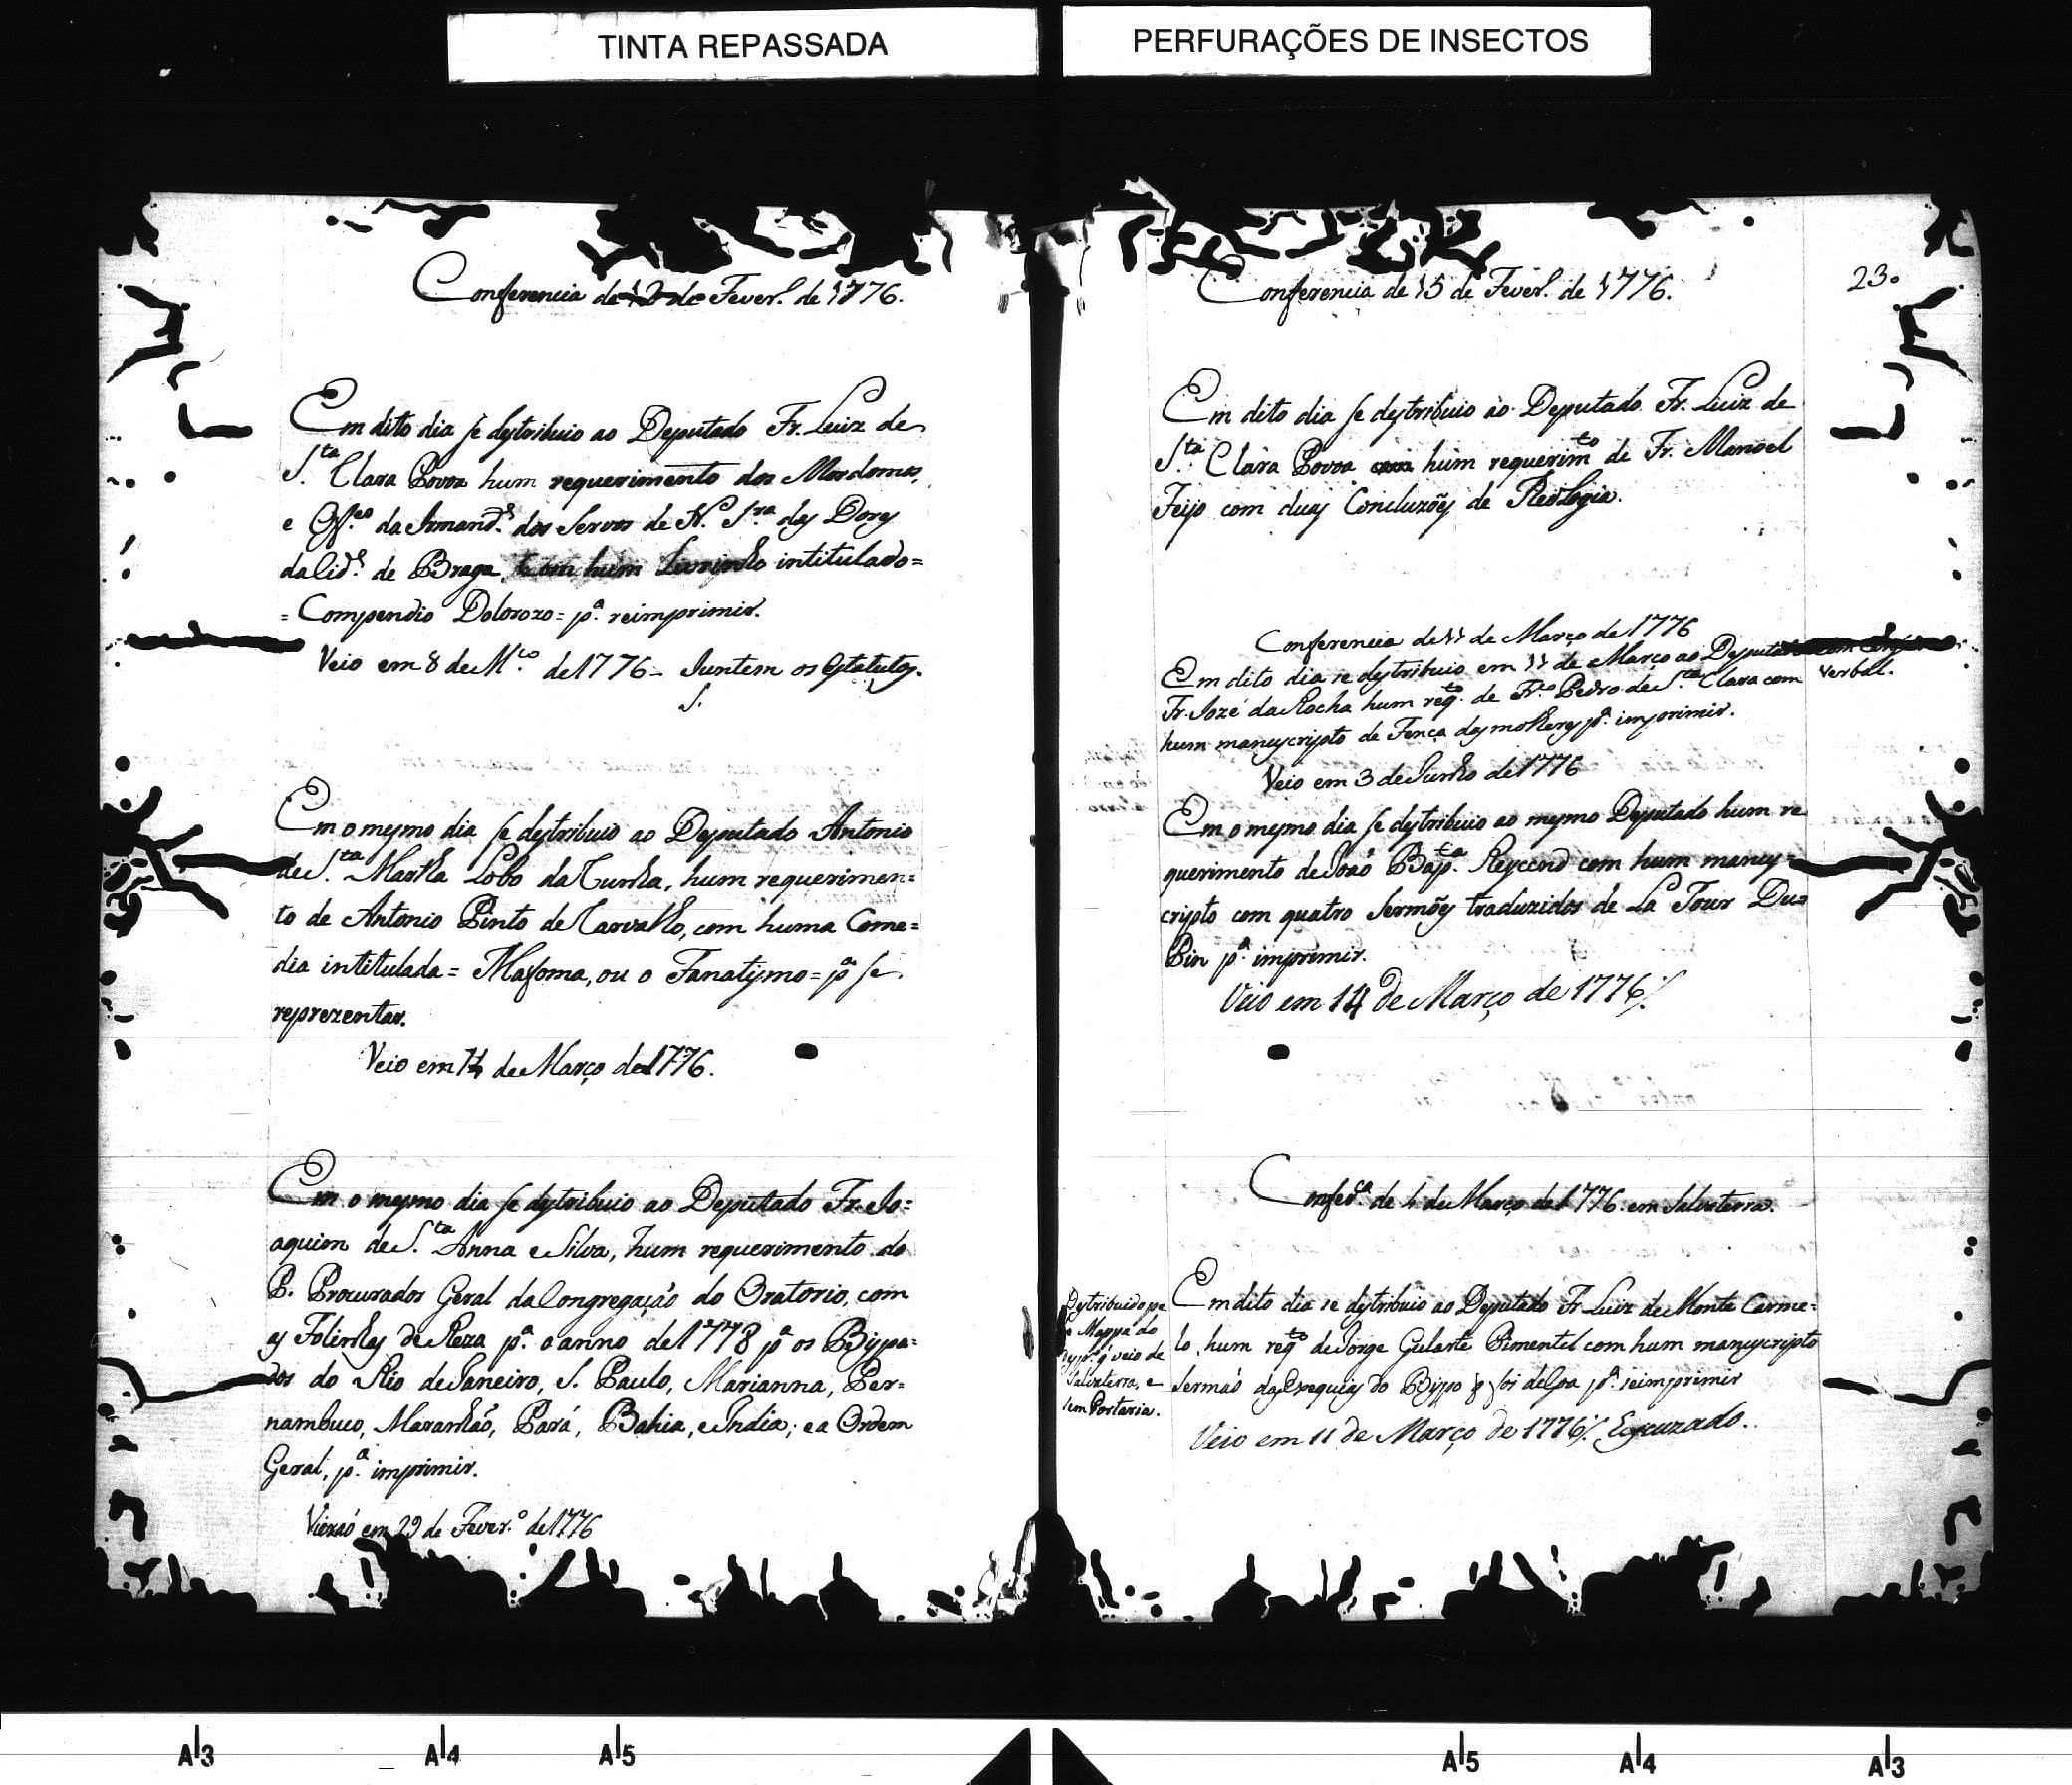 TINTA REPASSADA
PERFURAÇÕES DE INSECTOS
Conferencia de 12 de Fever.º de 1776.
Em dito dia se destribuio ao Deputado Fr. Luiz de
S.ta Clara Povoa hum requerimento dos Mordomos,
e Off.es da Irmand.e dos Servos de N. Sr.ª das Dores
da Cid.e de Braga, com hum Livrinho intitulado=
=Compendio Dolorozo= p.ª reimprimir.
Veio em 8 de M.ço de 1776 - Juntem os Estatutos.
S.
Em o mesmo dia se destribuio ao Deputado Antonio
de S.ta Martha Lobo da Cunha, hum requerimen=
to de Antonio Pinto de Carvalho, com huma Come=
dia intitulada= Mafoma, ou o Fanatismo= p.ª se
reprezentar.
Veio em 14 de Março de 1776.
Em o mesmo dia se destribuio ao Deputado Fr. Jo=
aquim de S.ta Anna e Silva, hum requerimento do
P. Procurador Geral da Congregação do Oratorio, com
as Folinhas de Reza p.ª o anno de 1778 p.ª os Bispa=
dos do Rio de Janeiro, S. Paulo, Marianna, Per=
nambuco, Maranhão, Pará, Bahia, e India; e a Ordem
Geral, p.ª imprimir.
Vieraó em 29 de Fever.º de 1776
23.
Conferencia de 15 de Fever.º de 1776.
Em dito dia se destribuio ao Deputado Fr. Luiz de
S.ta Clara Povoa hum requerim.to de Fr. Manoel
Feijo com duas Concluzões de Theologia.
Conferencia de 11 de Março de 1776
Em dito dia se destribuio em 11 de Março ao Deputado
Verbal.
Fr. Jozé da Rocha hum req.to de Fr. Pedro de S.ta Clara com
hum manuscripto de p.ª imprimir.
Veio em 3 de Junho de 1776
Em o mesmo dia se destribuio ao mesmo Deputado hum re
querimento de Joaó Bap.ta Reycend com hum manus=
cripto com quatro Sermões traduzidos de La Tour Du=
Pin p.ª imprimir.
Veio em 14 de Março de 1776
Confer.ca de 4 de Março de 1776 em Salvaterra.
Destribuido pe
o Mappa do
q veio de
Salvaterra, e
sem Portaria.
Em dito dia se destribuio ao Deputado Fr. Luiz de Monte Carme=
lo, hum req.to de Jorge Gularte Pimentel com hum manuscripto
Sermaó das Exequias do Bispo q foi de Goa p.ª reimprimir
Veio em 11 de Março de 1776 Escuzado.
A3
A4
A5
A5
A4
A3